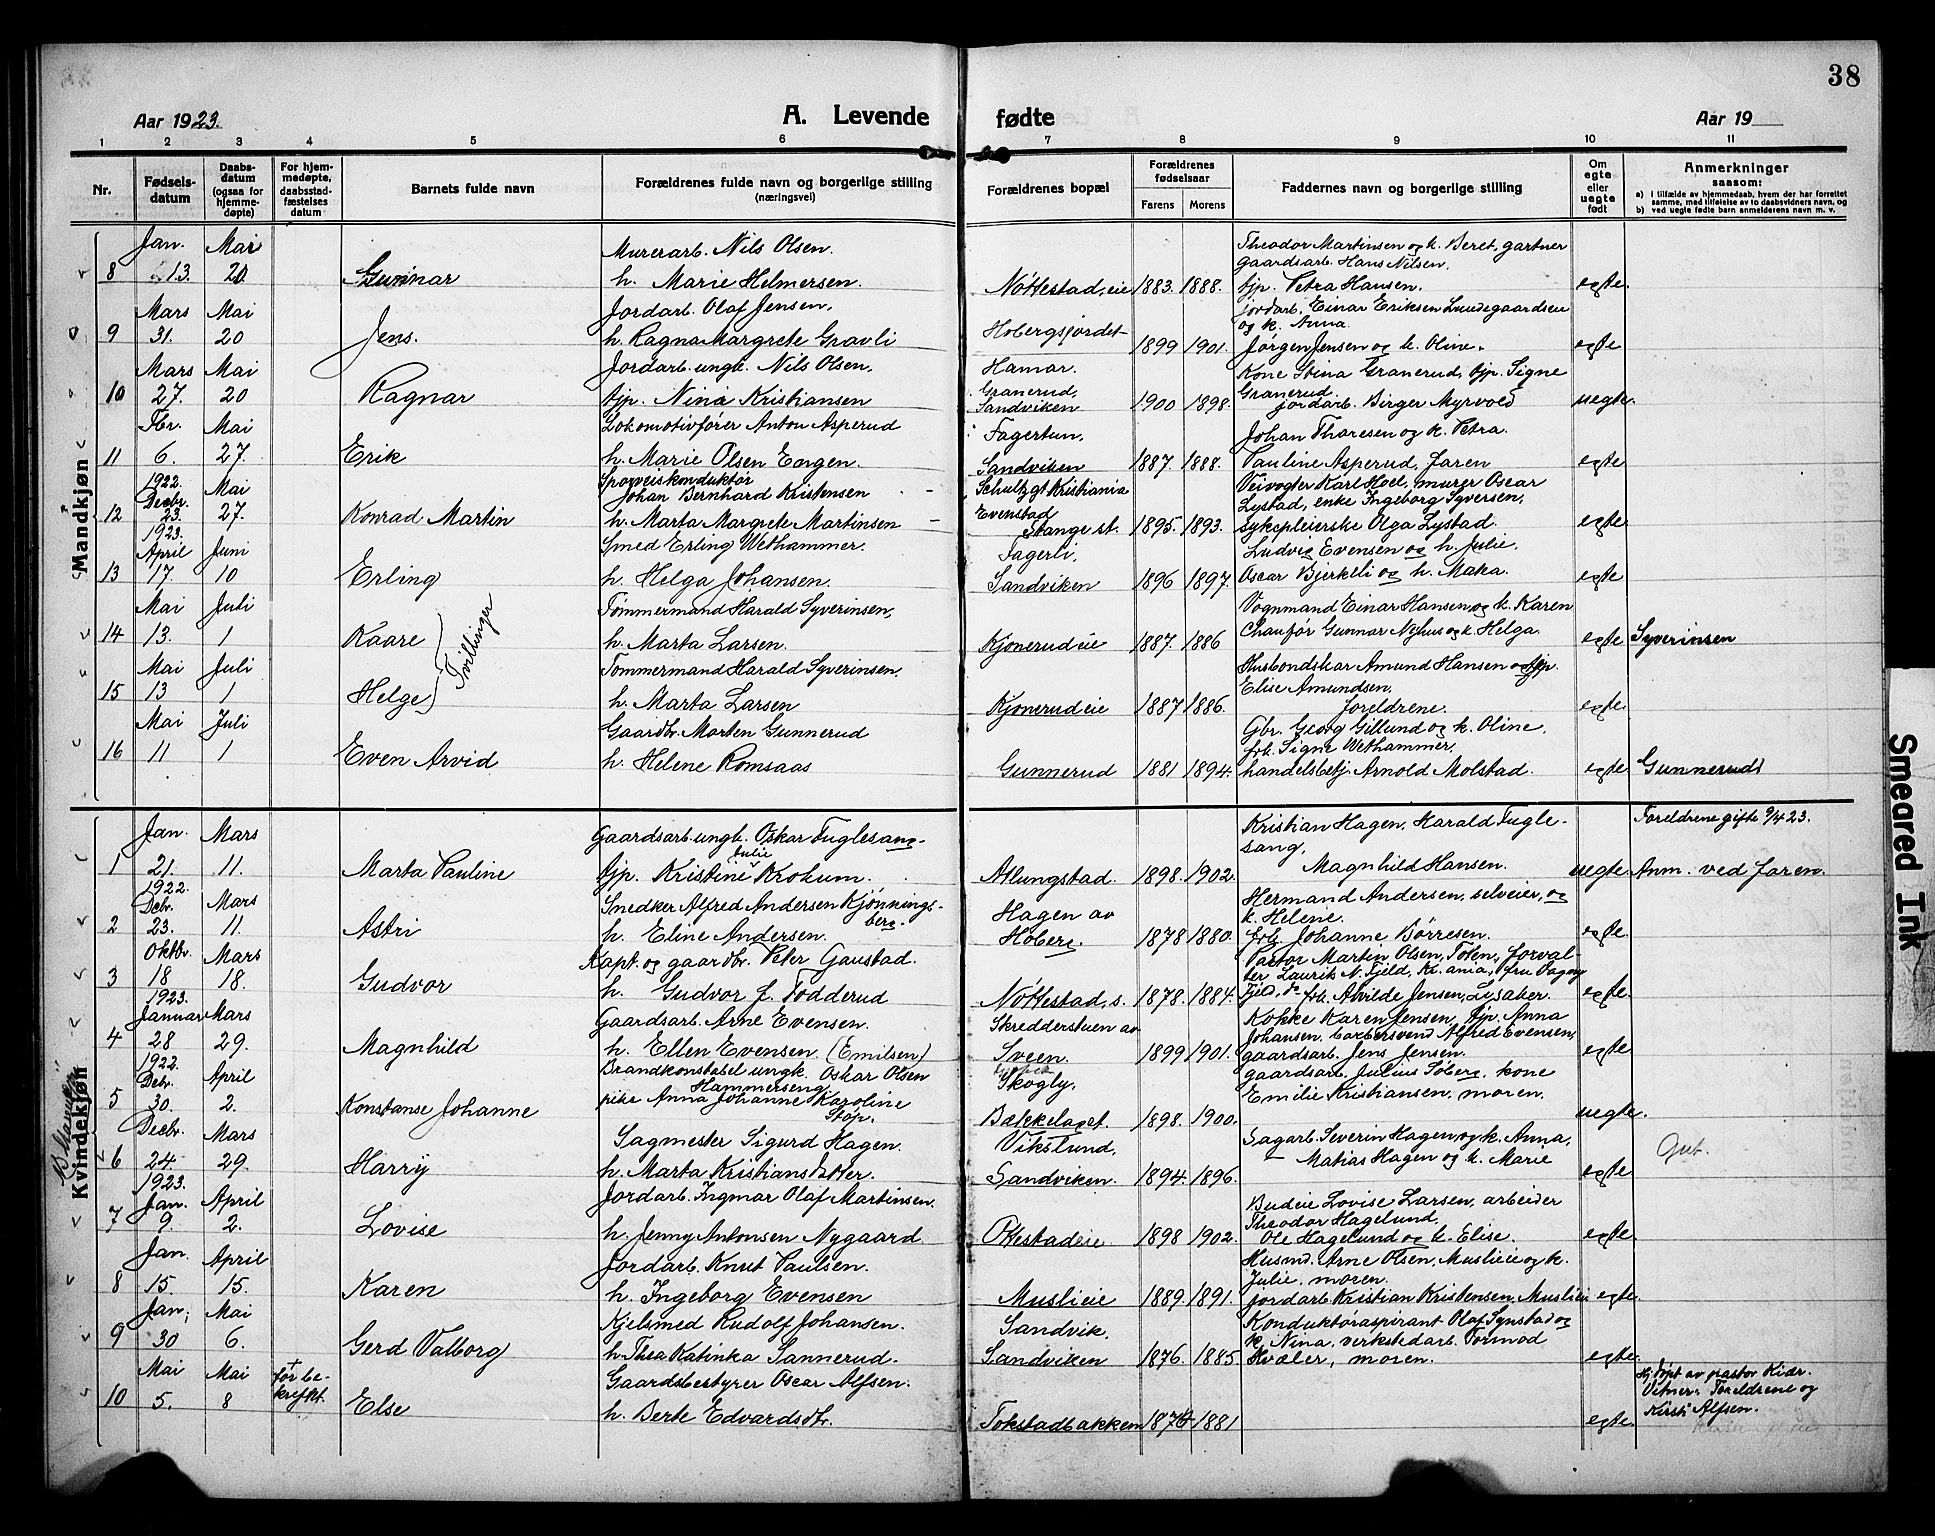 38
Aar 1923.
A. Levende fødte
Aar 19
1 2 3 4 5 6 7 8 9 10 11
Nr.
Fødselsdatum
Daabsdatum (ogsaa for hjemmedøpte)
For hjemmedøpte, daabsstadfæstelses datum
Barnets fulde navn
Forældrenes fulde navn og borgerlige stilling (næringsvei)
Forældrenes bopæl
Forældrenes fødselsaar
Farens Morens
Faddernes navn og borgerlige stilling
Om egte eller uegte født
Anmerkninger
saasom:
a) i tilfælde av hjemmedaab, hvem der har forrettet samme, med tilføielse av to daabsvidners navn, og
b) ved uegte fødte barn anmelderens navn m. v.
Mandkjøn
Jan. Mai Murerarb. Nils Olsen. Theodor Martinsen og k. Beret, gartner
gaardsarb. Hans Nilsen,
8 13. 20 Gunnar h. Marie Helmersen. Nøttestad, eie 1883. 1888. pip. Petra Hansen. egte.
Mars Mai Jordarb. Olaf Jensen, jordarb. Einar Eriksen Lundegaardseie
og k. Anna.
9 31. 20 Jens. h. Ragna Margrete Gravli Hobergsjordet 1899 1901. Jørgen Jensen og k. Oline. egte
Mars Mai Jordarb. ungk. Nils Olsen, Hamar. Kone Stina Granerud, pip. Signe
10 27. 20 Ragnar pip. Nina Kristiansen Granerud, Sandviken 1900 1898. Granerud. jordarb. Birger Myrvold uegte.
Fbr. Mai Lokomotivfører Anton Asperud Fagertun, Johan Thoresen og k. Petra.
11 6. 27. Erik h. Marie Olsen Engen. Sandviken 1887. 1888. Pauline Asperud, faren egte
1922. Decbr. Mai Sporveiskonduktør Johan Bernhard Kristensen Schultzgt Kristiania Veivogter Karl Hoel, murer Oscar
Evenstad Lystad, enke Ingeborg Syversen,
12 23. 27. Konrad Martin h. Marta Margrete Martinsen Stange st. 1895. 1893. sykepleierske Olga Lystad. egte
1923. April Juni Smed Erling Wethammer. Fagerli, Ludvig Evensen og h. Julie.
13 17. 10 Erling h. Helga Johansen. Sandviken 1896 1897. Oscar Bjerkeli og h. Maka. egte
Mai Juli Tømmermand Harald Syverinsen, Vognmand Einar Hansen og k. Karen
14 13. 1 Kaare h. Marta Larsen. Kjonerudeie 1887. 1886 Chaufør Gunnar Nyhus og k. Helga. egte Syverinsen
Tvillinger
Mai Juli Tømmermand Harald Syverinsen. Husbondskar Amund Hansen og pip.
Elise Amundsen.
15 13 1 Helge h. Marta Larsen Kjonerudeie 1887 1886. Foreldrene. egte.
Mai Juli Gaardbr. Morten Gunnerud Gbr. Georg Gillund og k. Oline,
frk. Signe Wethammer,
16 11 1 Even Arvid h. Helene Romsaas Gunnerud 1881 1894. handelsbetj. Arnold Molstad. egte Gunnerud
Kvindekjøn
Jan. Mars Gaardsarb. ungk. Oskar Fuglesang Kristian Hagen, Harald Fuglesang, Foreldrene gifte 9/4 23.
1 21. 11. Marta Pauline pip. Kristine Julie Krokum. Atlungstad. 1898. 1902. Magnhild Hansen. uegte. Anm. ved faren.
1922. Decbr. Mars Snedker Alfred Andersen Kjønningsberg. Hagen av Hermand Andersen, selveier, og
k. Helene.
2 23. 11. Astri h. Eline Andersen. Hoberg. 1878 1880. frk. Johanne Børresen. egte.
Oktbr. Mars Kapt. og gaardbr. Peter Gaustad. Pastor Martin Olsen, Toten, forvalter Laurits N. Fjeld, Kr.ania, fru Dagny
3 18 18. Gudvor h. Gudvor f. Todderud Nøttestad, s. 1878. 1884. Fjeld, do frk. Alvilde Jensen, Lysaker. egte.
1923. Januar Mars Gaardsarb. Arne Evensen. Skredderstuen av Kokke Karen Jensen, pip. Anna
Johansen, barbersvend Alfred Evensen,
4 28 29. Magnhild h. Ellen Evensen (Emilsen) Sveen. 1899 1901. gaardsarb. Jens Jensen. egte
1922. Decbr. April Brandkonstabel ungk. Oskar Olsen Hammerseng Skogly, gaardsarb. Julius Soberg, kone
5 30. 2. Konstanse Johanne pike Anna Johanne Karoline Støp. Bækkelaget. 1898. 1900. Emilie Kristiansen, moren. uegte.
Decbr. Mars Sagmester Sigurd Hagen. Vikslund, Sagarb. Severin Hagen og k. Anna,
6 24. 29. Harry h. Marta Kristiansdatter. Sandviken. 1894. 1896. Matias Hagen og k. Marie egte Gut.
1923. Jan. April Jordarb. Ingmar Olaf Martinsen. Budeie Lovise Larsen, arbeider
Theodor Hagelund,
7 9. 2. Lovise h. Jenny Antonsen Nygaard. Ottestadeie. 1898 1902. Ole Hagelund og k. Elise. egte.
Jan. April Jordarb. Knut Paulsen. Husmd. Arne Olsen, Muslieie og k.
Julie, moren.
8 15. 15. Karen h. Ingeborg Evensen Muslieie 1889. 1891. jordarb. Kristian Kristensen, Muslieie egte.
Jan; Mai Kjelsmed Rudolf Johansen. Sandvik, Konduktøraspirant Olaf Synstad og
k. Nina, verkstedarb. Tormod
9 30 6. Gerd Valborg h. Thea Katinka Sannerud. Sandviken 1876. 1885 Kvæler, moren. egte.
Mai Mai + før bekreftet. Gaardsbestyrer Oscar Alfsen. Hj. døpt av pastor Kidr.
10 5. 8 Else h. Berte Edvardsdtr. Tokstadbakken 1874 1881 egte. Vitner: Foreldrene og
Kirsti Alfsen.
Smeared Ink